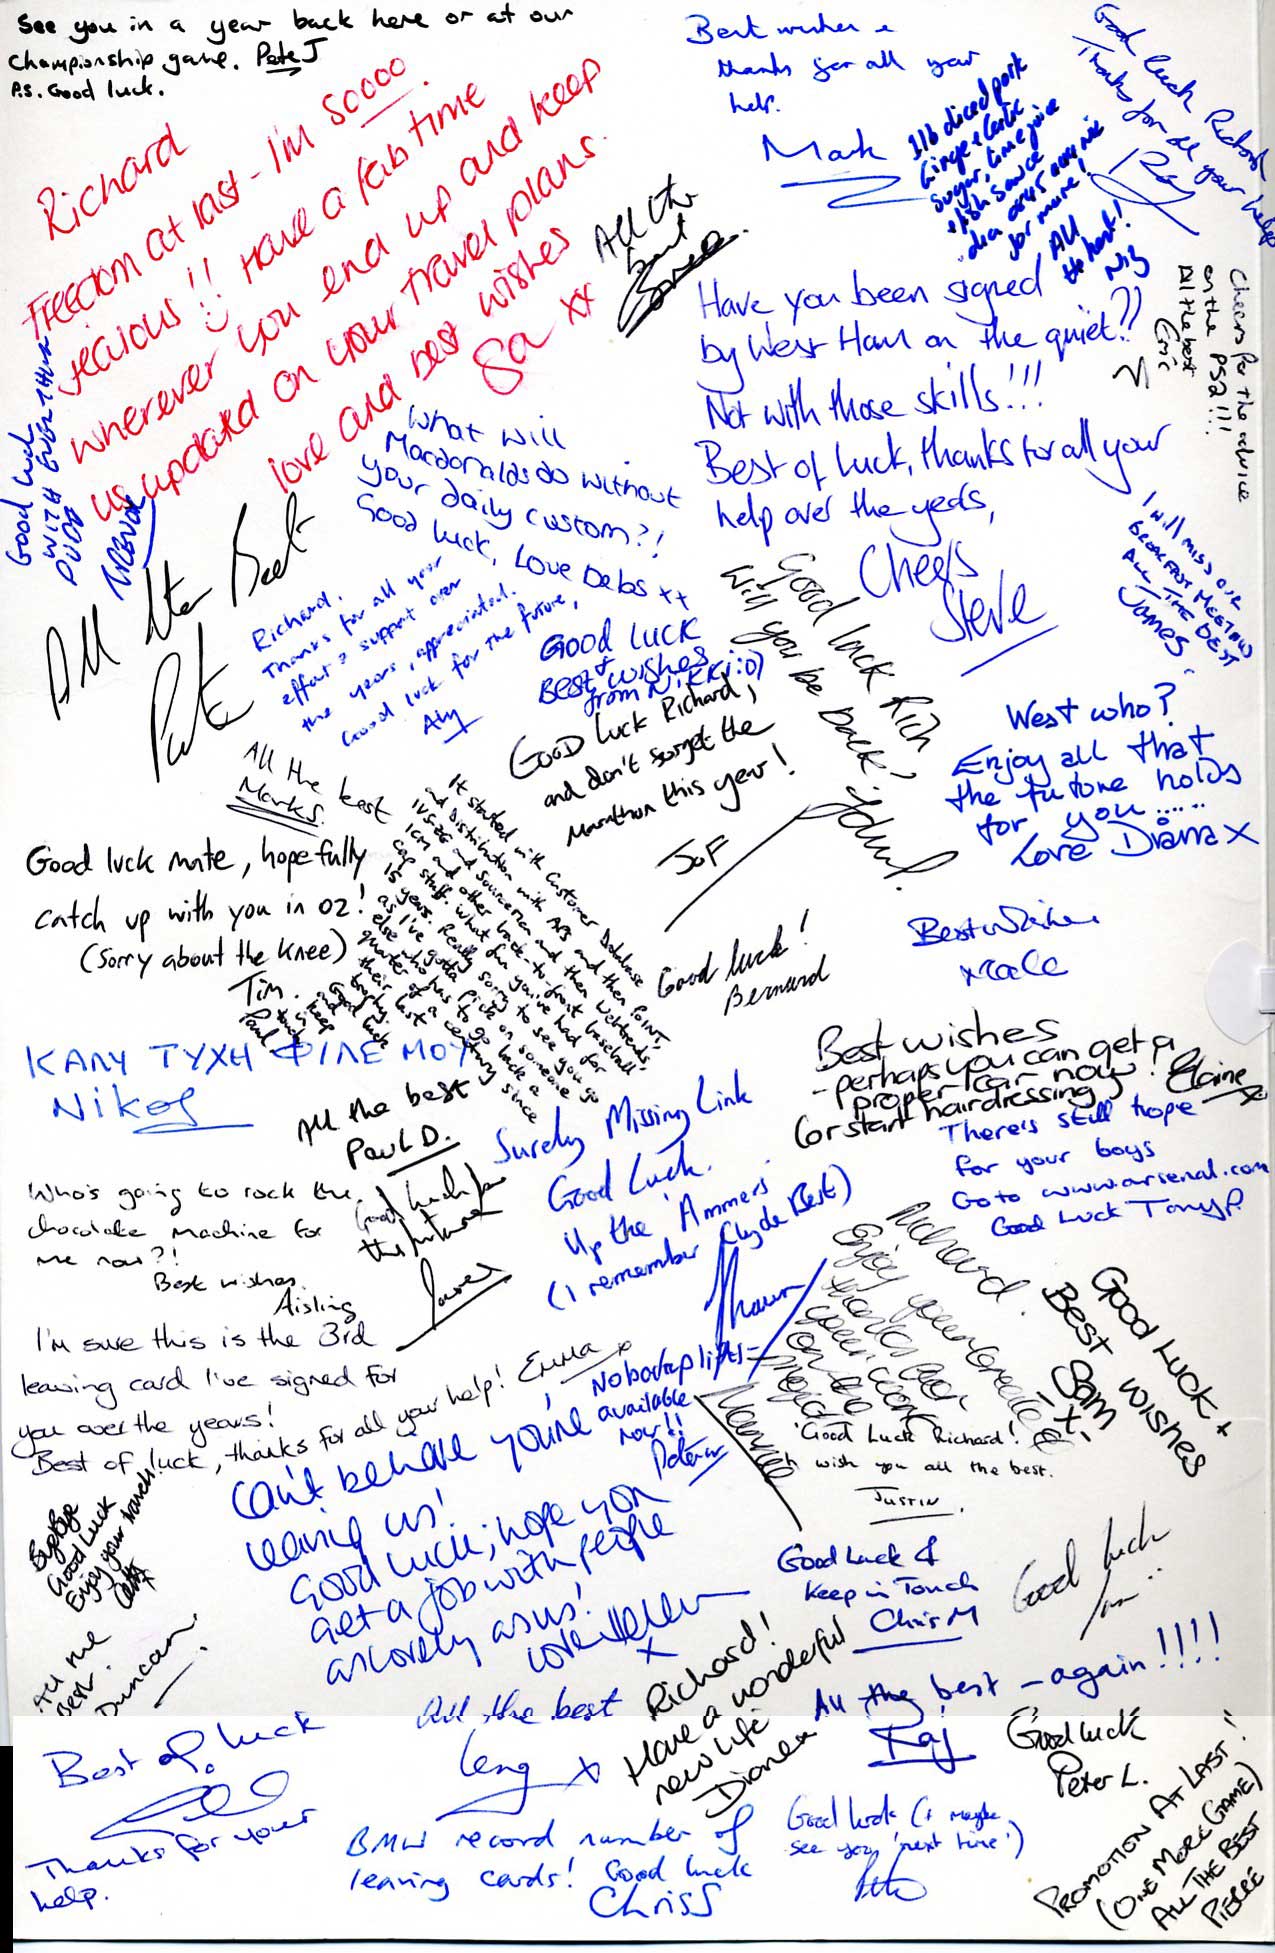 See you in a year back here or at our
Championship game. Pete J
P.s. Good luck.
Richard
Freedom at last - I'm soooo
jealous!! Have a fab time
wherever you end up and keep
us updated on your travel plans.
love and best wishes
Sa xx
Best wishes &
thanks for all your
help.
Mark
1lb diced pork
Ginger & Garlic
sugar, lime juice
& fish sauce
All
the best!
Good luck Richard
Thanks for all your help
Ray
All the
best
Have you been signed
by West Ham on the quiet??
Not with those skills!!!
Best of luck, thanks for all your
help over the years,
Cheers
Steve
Cheers for the advice
on the PS2!!!
All the best
Eric
Good luck
WITH EVERYTHING
DUDE
TREVOR
What will
Macdonalds do without
your daily custom?!
Good luck, Love Debs xx
All the Best
Pete
Richard,
Thanks for all your
effort & support over
the years, appreciated.
Good luck for the future,
Aly
GOOD LUCK
+
BEST WISHES
from NIKKI :o)
Good luck Rich,
will you be back?
John.
I will miss our
BREAKFAST MEETINGS
ALL THE BEST
JAMES
GOOD Luck Richard,
and don't forget the
Marathon this year!
Jo F
West who?
Enjoy all that
the future holds
for you......
Love Diana x
All the best
Mark S.
Good luck mate, hopefully
catch up with you in OZ!
(Sorry about the knee)
Tim.
It started with Customer Database
and Distribution with APS and then POINT,
IVS-2G and Sourcerian and then Webtrends,
ICM and other back-to-front baseball
cap stuff. What fun you've had for
15 years. Really sorry to see you go
as I've gotta pick on someone
else who has to go back a
quarter of a century since
their last
Good luck
and keep
in touch
Paul
Good luck!
Bernard
Best Wishes
ΚΑΛΥ ΤΥΧΗ ΦΙΛΕ ΜΟΥ
Nikos
All the best
Paul D.
Best wishes
- perhaps you can get a
proper car now!
(or start hairdressing)
Elaine x
Surely Missing Link
Good Luck.
Up the 'Ammers
(I remember Clyde Best)
Shaun
There's still hope
for your boys
Go to www.arsenal.com
Good Luck Tony P.
Who's going to rock the
chocolate machine for
me now?!
Best wishes
Aisling
Good luck for
the future
James
Richard.
Enjoy your break
thanks for
your work
on the
project
Good Luck +
Best wishes
Sam
x
I'm sure this is the 3rd
leaving card I've signed for
you over the years!
Best of luck, thanks for all your help! Emma x
No bootup lifts
available
now!!
Peter W
Can't believe you're
leaving us!
Good luck; hope you
get a job with people
as lovely as us!
love Helen
x
Good Luck Richard!
wish you all the best.
JUSTIN.
Bye Bye
Good Luck
Enjoy your travels!
All the
Best.
Duncan
Good Luck &
Keep in Touch
Chris M
Good luck
Richard!
Have a wonderful
new life
Dianea
All the best - again!!!!
Raj
Best of luck
Thanks for your
help.
All the best
Leng x
Good luck
Peter L.
BMW record number of
leaving cards! Good luck
Chris S
Good luck (& maybe
see you 'next time')
PROMOTION AT LAST!!
(ONE MORE GAME)
ALL THE BEST
PIERRE